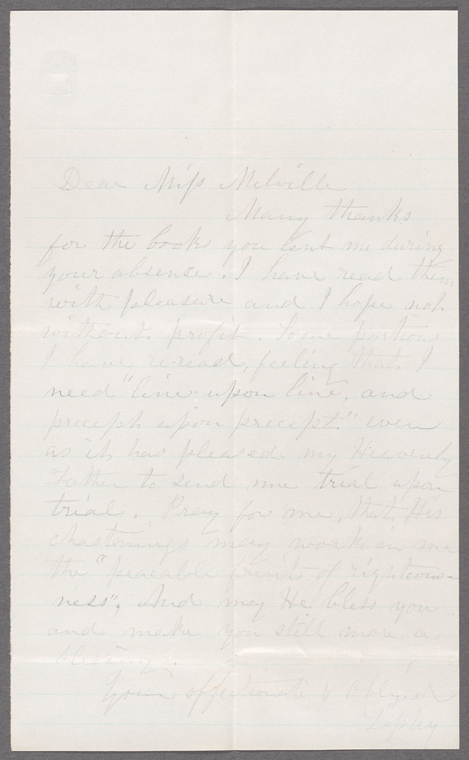 Dear Miss Melville
Many thanks
for the books you lent me during
your absense. I have read them
with pleasure and I hope not
without profit. Some portion
I have re-read, feeling that I
need "line upon line, and
precept upon precept" even
as it has pleased my Heavenly
Father to send me trial upon
trial. Pray for me, that His
chastenings may work in me
the "peacable fruits of righteous-
ness". And may He bless you
and make you still more a
blessing.
Your affectionate &